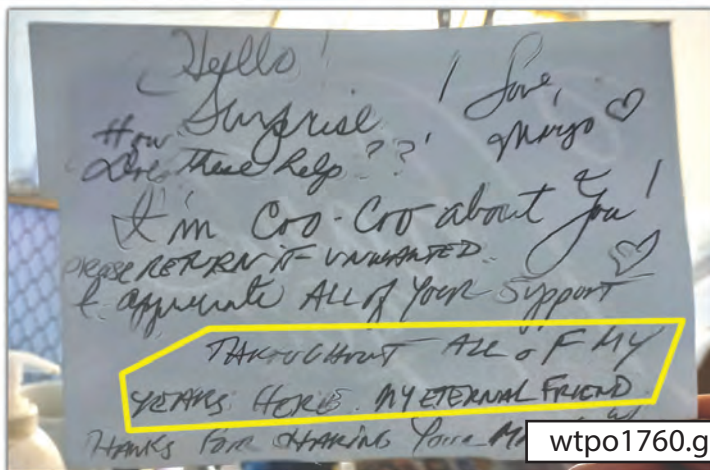 Hello!
Surprise !
Love,
Margo
How
Does these help??
I'm Coo-Coo about you!
please RETURN IF UNWANTED.
I appreciate ALL of your Support
THROUGHOUT ALL OF MY
YEARS HERE. MY ETERNAL FRIEND.
THANKS FOR SHARING Your
wtpo1760.g